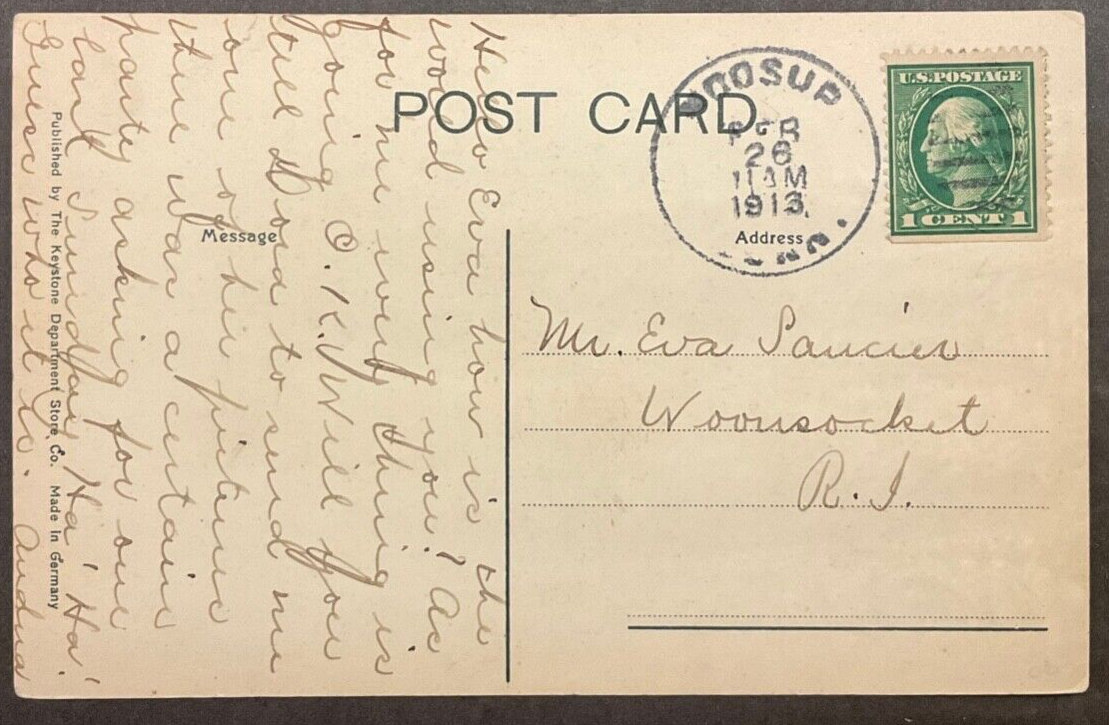 POST CARD.
MOOSUP
26
11 AM
1913
CONN.
U.S. POSTAGE
1 CENT 1
Message
Address
Hello Eva how is the
world using you? As
for me every thing is
going O.K. Will you
tell to send me
one of his picture
there was a certain
party asking for one
last Sunday Ha! Ha!
Guess who it is.
Mr. Eva Saucier
Woonsocket
R.I.
Published by The Keystone Department Store Co. Made In Germany